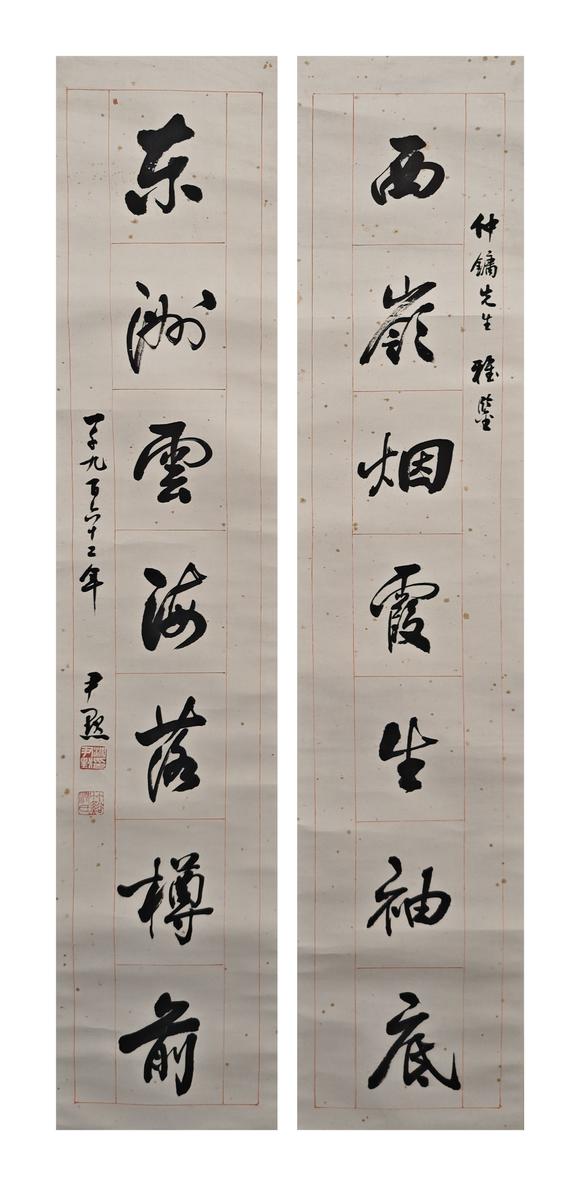 仲鏞先生 雅鑒
西嶺烟霞生袖底
东洲雲海落樽前
一千九百六十二年 尹默